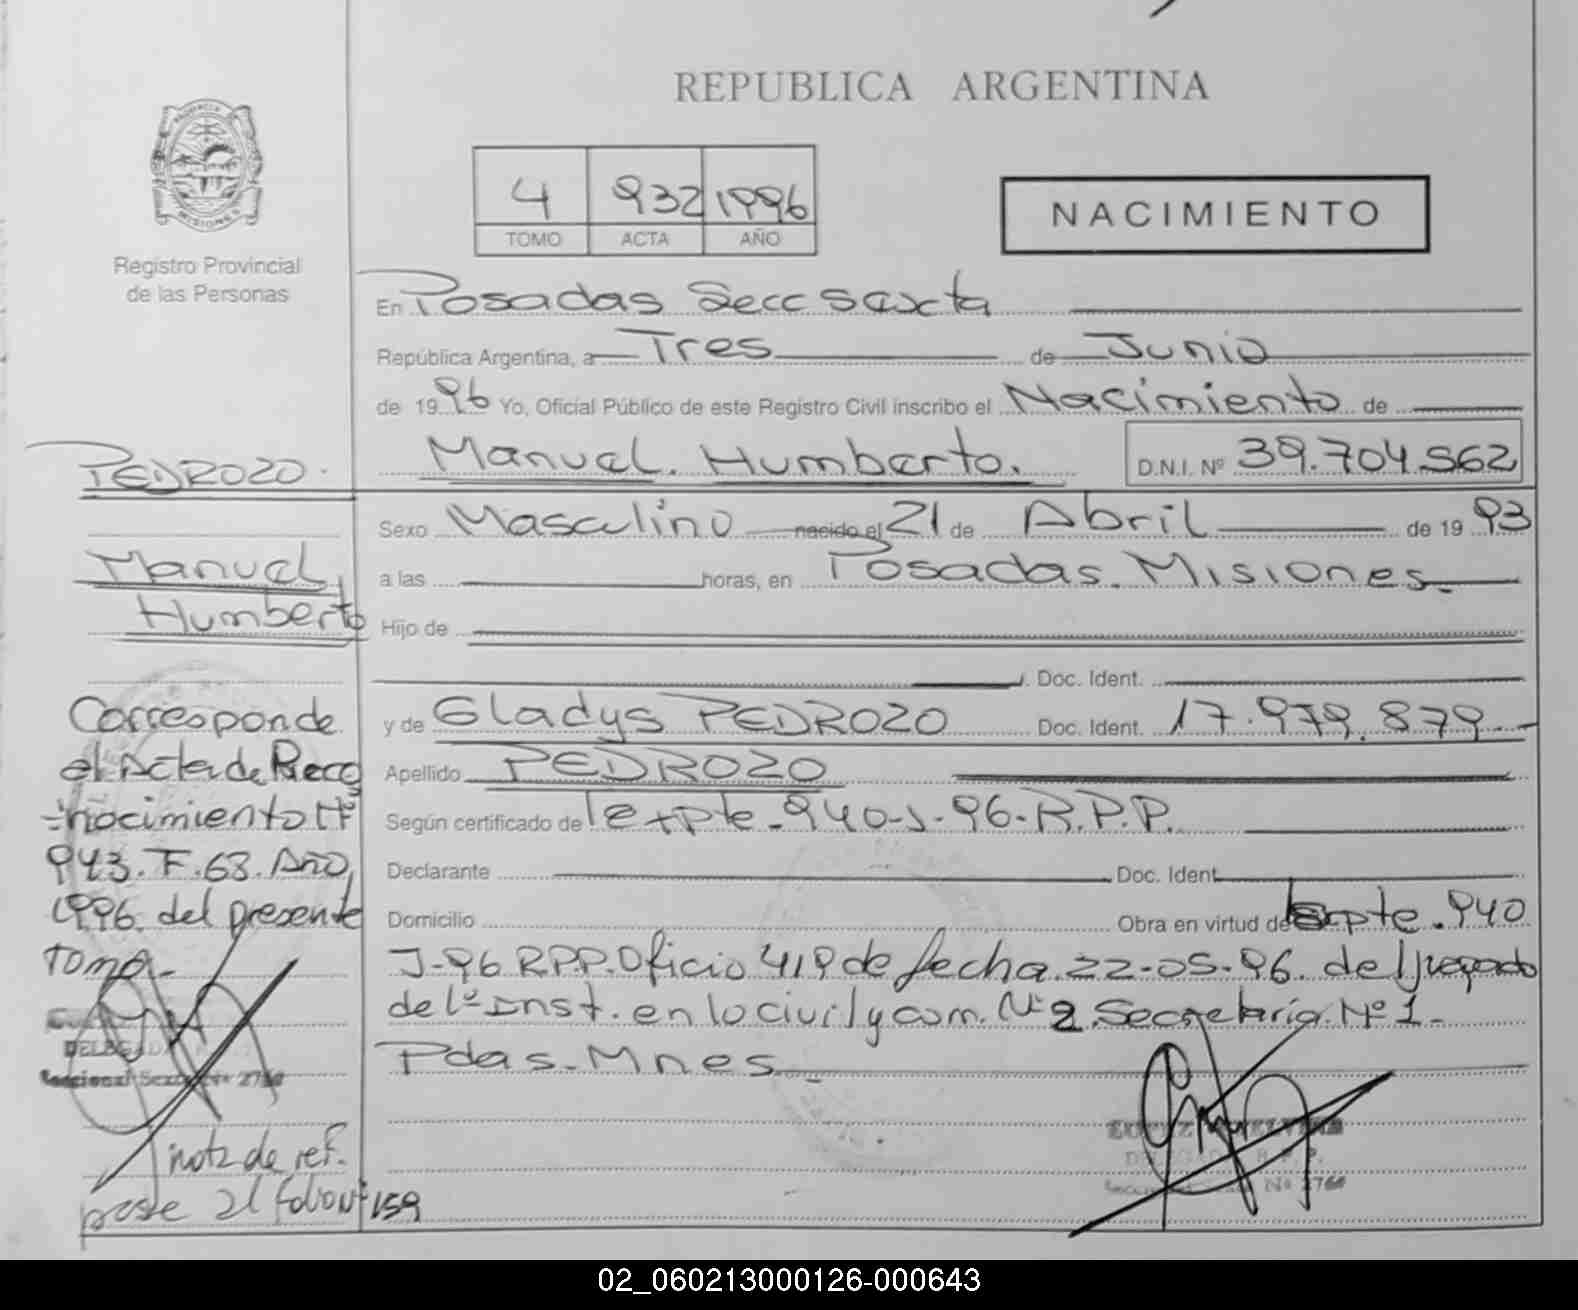 REPUBLICA ARGENTINA
PROVINCIA
MISIONES
Registro Provincial
de las Personas
4 932 1996
TOMO ACTA AÑO
NACIMIENTO
En Posadas Secc Sexta
República Argentina, a Tres de Junio
de 1996 Yo, Oficial Público de este Registro Civil inscribo el Nacimiento de
Manuel. Humberto. D.N.I. Nº 39.704.562
Sexo Masculino nacido el 21 de Abril de 1993
a las horas, en Posadas. Misiones.
Hijo de
Doc. Ident.
y de Gladys PEDROZO Doc. Ident. 17.979.879.-
Apellido PEDROZO
Según certificado de expte-940-J-96-R.P.P.
Declarante Doc. Ident.
Domicilio Obra en virtud de Expte. 940
J-96 R.P.P. Oficio 419 de fecha 22-05-96. del Juzgado
de 1º Inst. en lo civil y com. Nº 2. Secretaría. Nº 1-
Pdas-Mnes-
DELEGADA
Seccional Sexta Nº 2760
PEDROZO.
Manuel,
Humberto
Corresponde
el Acta de Reco
-nocimiento Nº
943. F. 68. Año
1996. del presente
Tomo.-
DELEGADA
Seccional Sexta Nº 2760
nota de ref.
pase al folio Nº 159
02_060213000126-000643